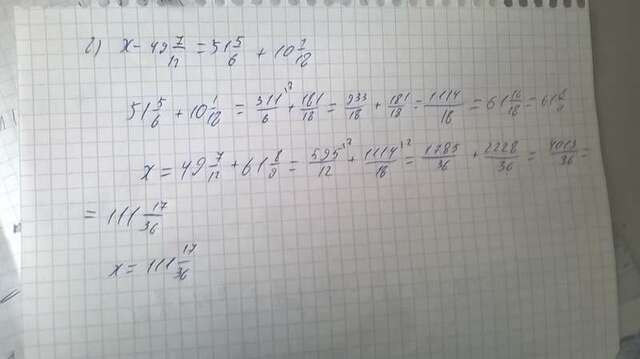 г) x - 49 7/12 = 51 5/6 + 10 1/18
51 5/6 + 10 1/18 = 311/6 ^3 + 181/18 = 933/18 + 181/18 = 1114/18 = 61 16/18 = 61 8/9
x = 49 7/12 + 61 8/9 = 595/12 ^3 + 1114/18 ^2 = 1785/36 + 2228/36 = 4013/36 =
= 111 17/36
x = 111 17/36